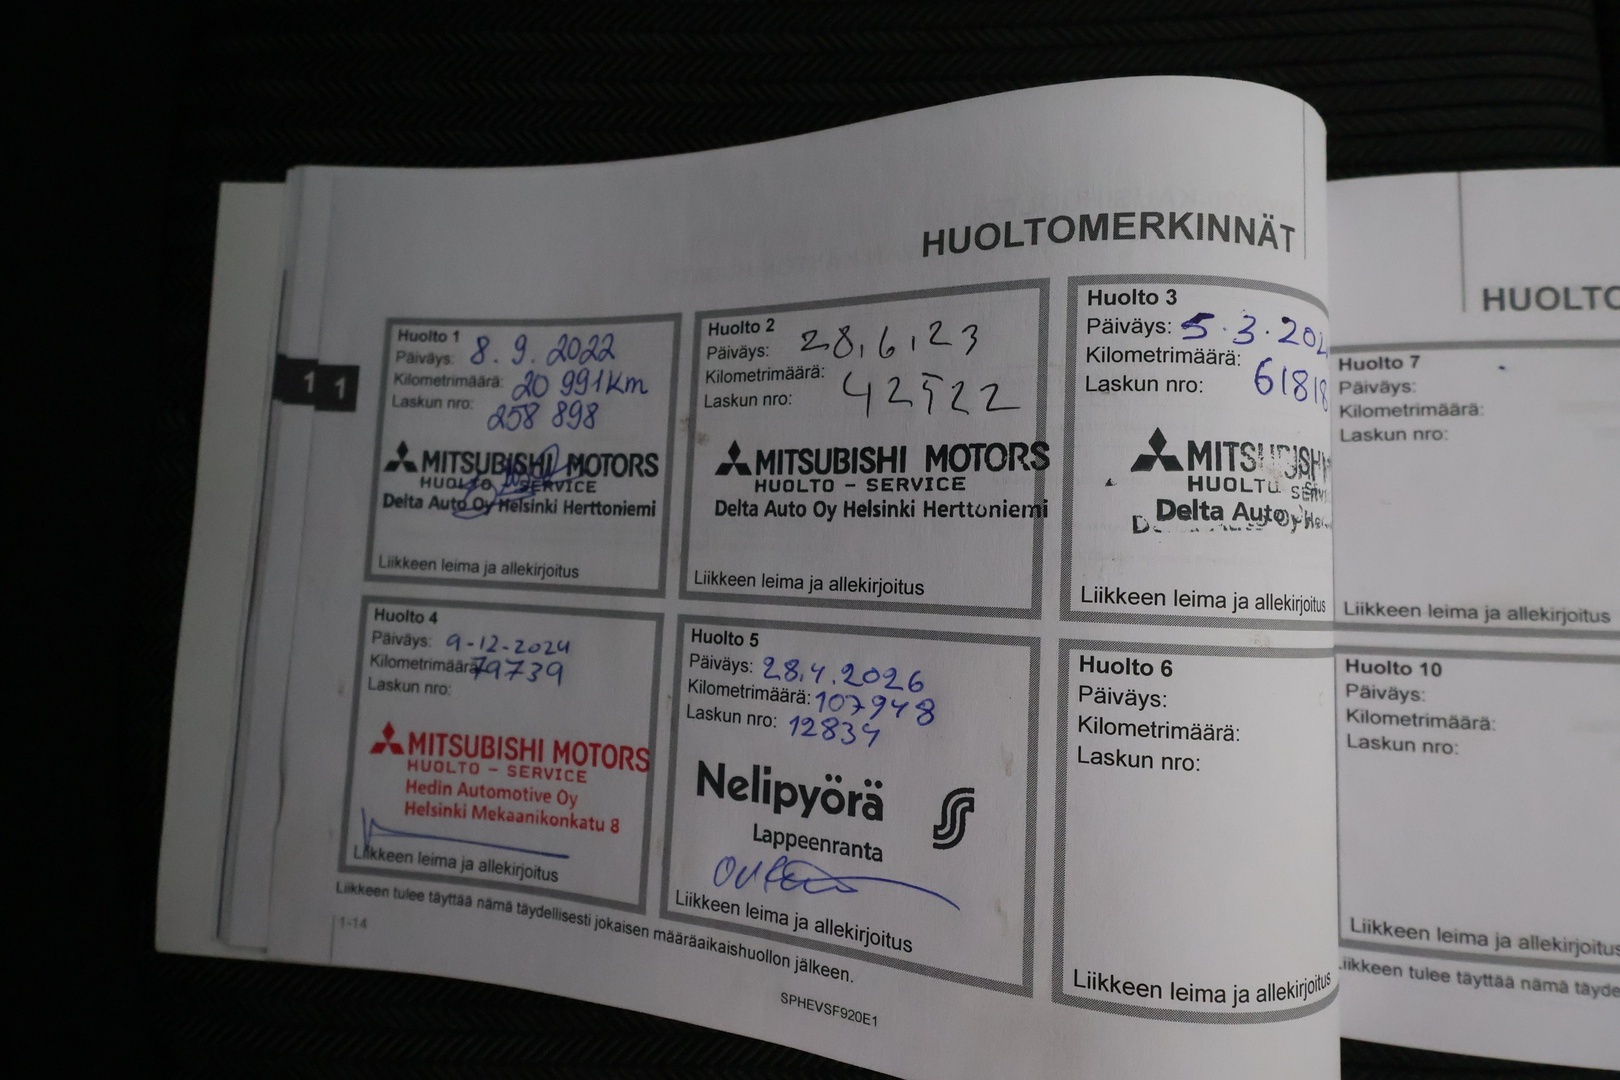 HUOLTOMERKINNÄT
Huolto 1
Päiväys: 8.9.2022
Kilometrimäärä: 20 991 km
Laskun nro:
258 898
MITSUBISHI MOTORS
HUOLTO - SERVICE
Delta Auto Oy Helsinki Herttoniemi
Liikkeen leima ja allekirjoitus
Huolto 2
Päiväys: 28,6,23
Kilometrimäärä:
Laskun nro: 42522
MITSUBISHI MOTORS
HUOLTO - SERVICE
Delta Auto Oy Helsinki Herttoniemi
Liikkeen leima ja allekirjoitus
Huolto 3
Päiväys: 5.3.202
Kilometrimäärä:
Laskun nro: 61818
MITSUBISH
HUOLTO SERVI
Delta Auto Oy He
Liikkeen leima ja allekirjoitus
Huolto 4
Päiväys: 9-12-2024
Kilometrimäärä 79739
Laskun nro:
MITSUBISHI MOTORS
HUOLTO - SERVICE
Hedin Automotive Oy
Helsinki Mekaanikonkatu 8
Liikkeen leima ja allekirjoitus
Huolto 5
Päiväys: 28.4.2026
Kilometrimäärä: 107948
Laskun nro: 12834
Nelipyörä
Lappeenranta
Liikkeen leima ja allekirjoitus
Huolto 6
Päiväys:
Kilometrimäärä:
Laskun nro:
Liikkeen leima ja allekirjoitus
Liikkeen tulee täyttää nämä täydellisesti jokaisen määräaikaishuollon jälkeen.
1-14
SPHEVSF920E1
1
1
HUOLTO
Huolto 7
Päiväys:
Kilometrimäärä:
Laskun nro:
Liikkeen leima ja allekirjoitus
Huolto 10
Päiväys:
Kilometrimäärä:
Laskun nro:
Liikkeen leima ja allekirjoitus
Liikkeen tulee täyttää nämä täyde